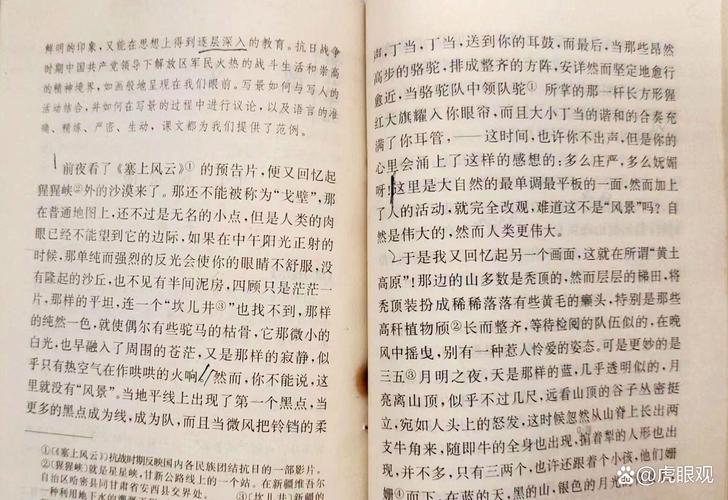 鲜明的印象，又能在思想上得到逐层深入的教育。抗日战争
时期中国共产党领导下解放区军民火热的战斗生活和崇高
的精神境界，如画般地呈现在我们眼前。写景如何与写人的
活动结合，并如何在写景的过程中进行议论，以及语言的准
确、精练、严密、生动，课文都为我们提供了范例。
前夜看了《塞上风云》①的预告片，便又回忆起
猩猩峡②外的沙漠来了。那还不能被称为“戈壁”，那
在普通地图上，还不过是无名的小点，但是人类的肉
眼已经不能望到它的边际，如果在中午阳光正射的
时候，那单纯而强烈的反光会使你的眼睛不舒服，没
有隆起的沙丘，也不见有半间泥房，四顾只是茫茫一
片，那样的平坦，连一个“坎儿井③”也找不到，那样
的纯然一色，就使偶尔有些驼马的枯骨，它那微小的
白光，也早融入了周围的苍茫，又是那样的寂静，似
乎只有热空气在作哄哄的火响。然而，你不能说，这
里就没有“风景”。当地平线上出现了第一个黑点，当
更多的黑点成为线，成为队，而且当微风把铃铛的柔
①《塞上风云》抗战时期反映国内各民族团结抗日的一部影片。
②〔猩猩峡〕就是星星峡，甘新公路线上的一个站。在新疆维吾尔
自治区哈密县同甘肃省安西县交界处。③〔坎儿井〕新疆的
一种利用地下水的
声，丁当，丁当，送到你的耳鼓，而最后，当那些昂然
高步的骆驼，排成整齐的方阵，安详然而坚定地愈行
愈近，当骆驼队中领队驼①所掌的那一杆长方形猩
红大旗耀入你眼帘，而且大小丁当的谐和的合奏充
满了你耳管，——这时间，也许你不出声，但是你的
心里会涌上了这样的感想的：多么庄严，多么妩媚
呀！这里是大自然的最单调最平板的一面，然而加上
了人的活动，就完全改观，难道这不是“风景”吗？自
然是伟大的，然而人类更伟大。
于是我又回忆起另一个画面，这就在所谓“黄土
高原”！那边的山多数是秃顶的，然而层层的梯田，将
秃顶装扮成稀稀落落有些黄毛的癞头，特别是那些
高秆植物颀②长而整齐，等待检阅的队伍似的，在晚
风中摇曳，别有一种惹人怜爱的姿态。可是更妙的是
三五③月明之夜，天是那样的蓝，几乎透明似的，月
亮离山顶，似乎不过几尺，远看山顶的谷子丛密挺
立，宛如人头上的怒发，这时候忽然从山脊上长出两
支牛角来，随即牛的全身也出现，掮着犁的人形也出
现，并不多，只有三两个，也许还跟着个小孩，他们姗
姗④而下，在蓝的天，黑的山，银色的月光
虎眼观